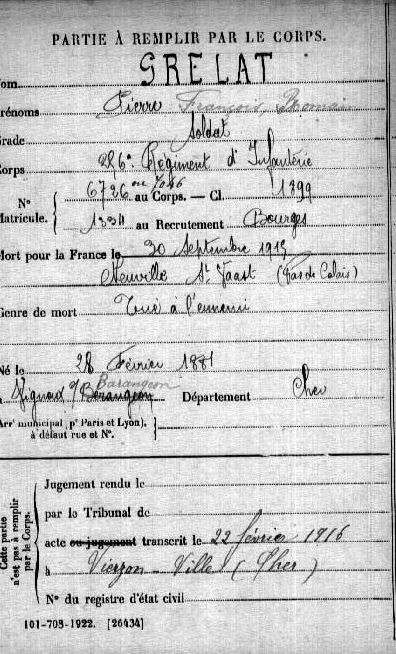 PARTIE À REMPLIR PAR LE CORPS.
GRELAT
Nom
Prénoms Pierre François Romain
Grade Soldat
Corps 256e Régiment d'Infanterie
N° Matricule. { 6726 ou 7046 au Corps. — Cl. 1899
1334 au Recrutement Bourges
Mort pour la France le 30 Septembre 1915
Neuville St Vaast (Pas de Calais)
Genre de mort Tué à l'ennemi
Né le 28 Février 1881
Barangeon
à Vignoux s/ Berangeon Département Cher
Arrt municipal (pr Paris et Lyon),
à défaut rue et N°.
Cette partie n'est pas à remplir par le Corps.
Jugement rendu le
par le Tribunal de
acte ou jugement transcrit le 22 février 1916
à Vierzon-Ville (Cher)
N° du registre d'état civil
101-708-1922. [26434]